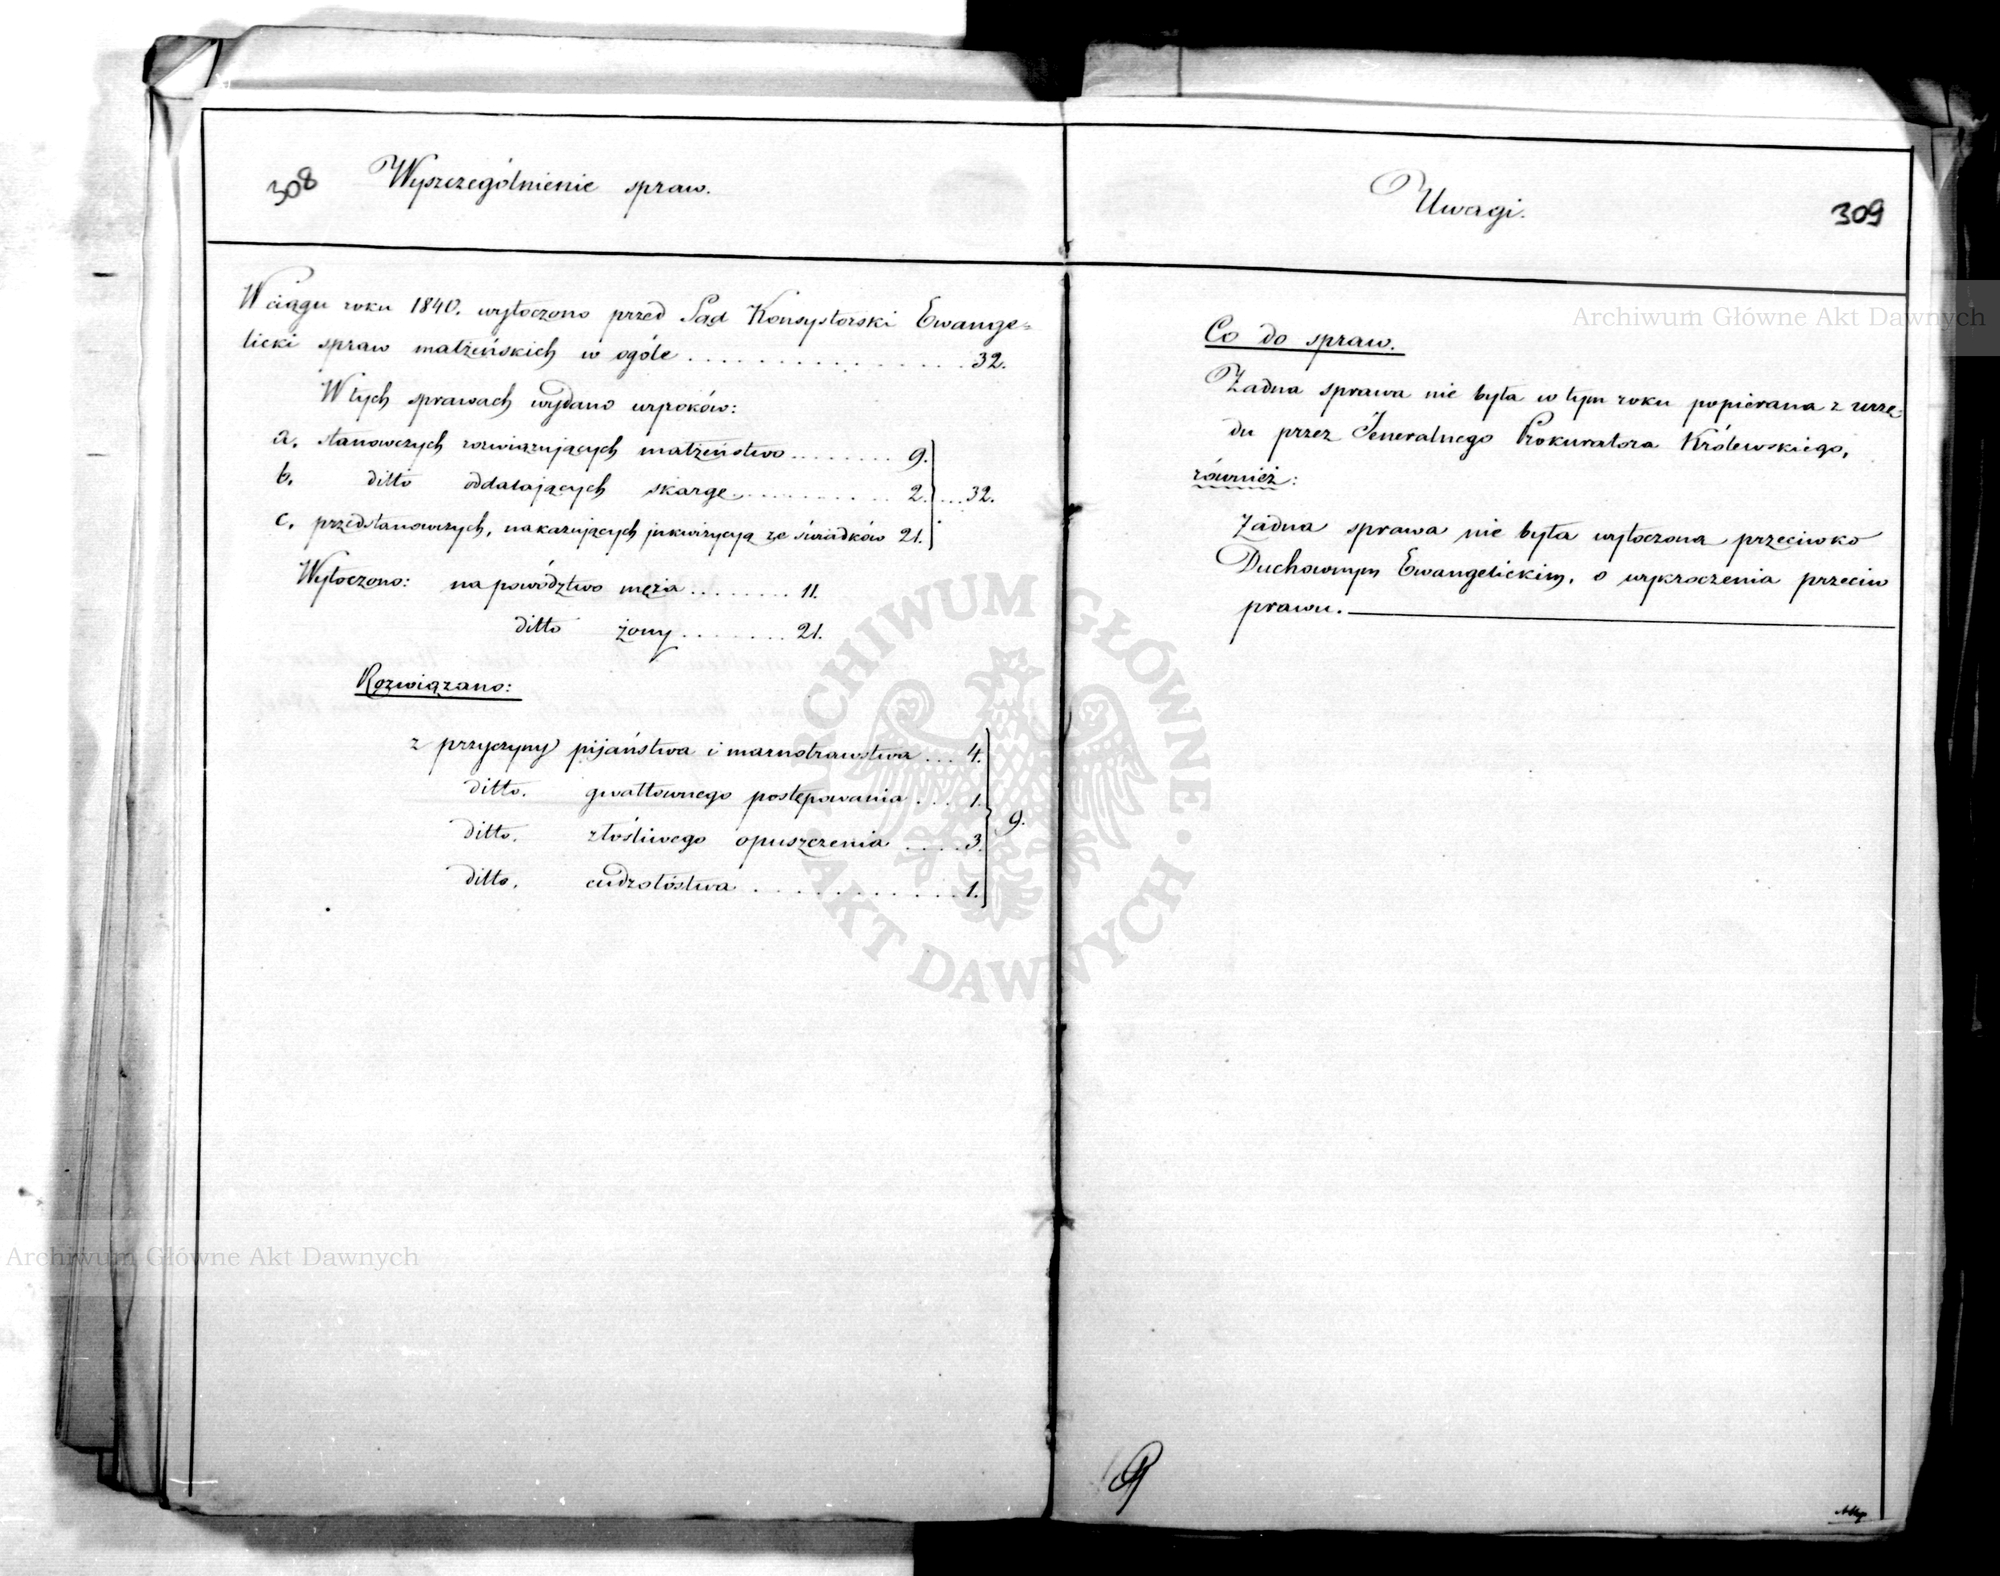 308 Wyszczególnienie spraw.
W ciągu roku 1840. wytoczono przed Sąd Konsystorski Ewange=
licki spraw małżeńskich w ogóle . . . . . . . . . . . . . . . 32.
W tych sprawach wydano wyroków:
a. stanowczych rozwiązujących małżeństwo . . . . . . . . 9.
b. ditto oddalających skargę . . . . . . . . . . . 2. . . . 32.
c. przedstanowczych, nakazujących inkwizycyą ze świadków 21.
Wytoczono: na powództwo męża . . . . . . . . 11.
ditto żony . . . . . . . 21.
Rozwiązano:
z przyczyny pijaństwa i marnotrawstwa . . . 4.
ditto. gwałtownego postępowania . . . 1.
9.
ditto. złośliwego opuszczenia . . . . 3.
ditto. cudzołóstwa . . . . . . . . . . . . 1.
Uwagi. 309
Co do spraw.
Żadna sprawa nie była w tym roku popierana z urzę=
du przez Jeneralnego Prokuratora Królewskiego,
również:
Żadna sprawa nie była wytoczona przeciwko
Duchownym Ewangelickim, o wykroczenia przeciw
prawu.
ARCHIWUM GŁÓWNE AKT DAWNYCH
Archiwum Główne Akt Dawnych
Archiwum Główne Akt Dawnych